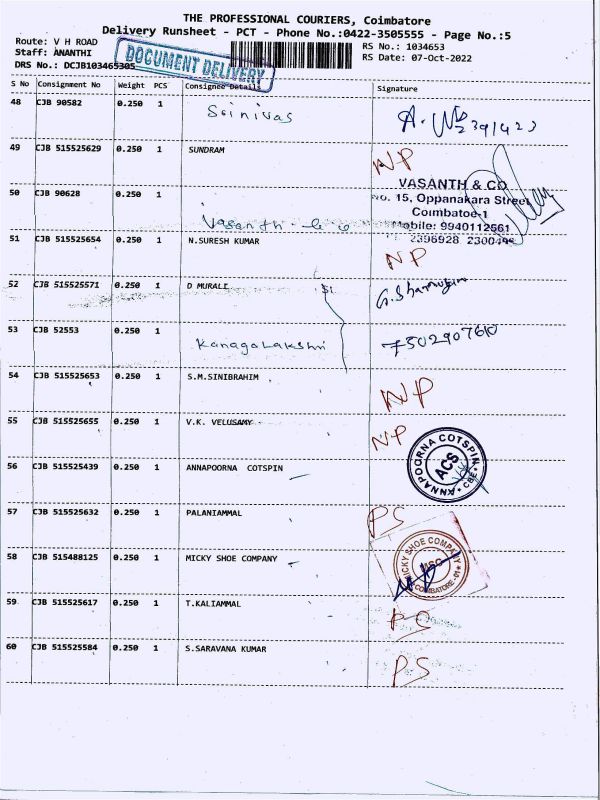 THE PROFESSIONAL COURIERS, Coimbatore
Delivery Runsheet - PCT - Phone No.:0422-3505555 - Page No.:5
Route: V H ROAD
Staff: ANANTHI
DRS No.: DCJB103465305
DOCUMENT DELIVERY
RS No.: 1034653
RS Date: 07-Oct-2022
S No Consignment No Weight PCS Consignee Details Signature
48 CJB 90582 0.250 1 Srinivas
49 CJB 515525629 0.250 1 SUNDRAM NP
50 CJB 90628 0.250 1 Vasanth & co
VASANTH & CO
No. 15, Oppanakara Street
Coimbatoe-1
Mobile: 9940112661
51 CJB 515525654 0.250 1 N.SURESH KUMAR NP
52 CJB 515525571 0.250 1 D MURALI
53 CJB 52553 0.250 1 Kanagalakshmi 7502907610
54 CJB 515525653 0.250 1 S.M.SINIBRAHIM NP
55 CJB 515525655 0.250 1 V.K. VELUSAMY NP
56 CJB 515525439 0.250 1 ANNAPOORNA COTSPIN
ANNAPOORNA COTSPIN CBE ACS
57 CJB 515525632 0.250 1 PALANIAMMAL PS
58 CJB 515488125 0.250 1 MICKY SHOE COMPANY
MICKY SHOE COMPANY MSC COIMBATORE-01
59 CJB 515525617 0.250 1 T.KALIAMMAL PS
60 CJB 515525584 0.250 1 S.SARAVANA KUMAR PS